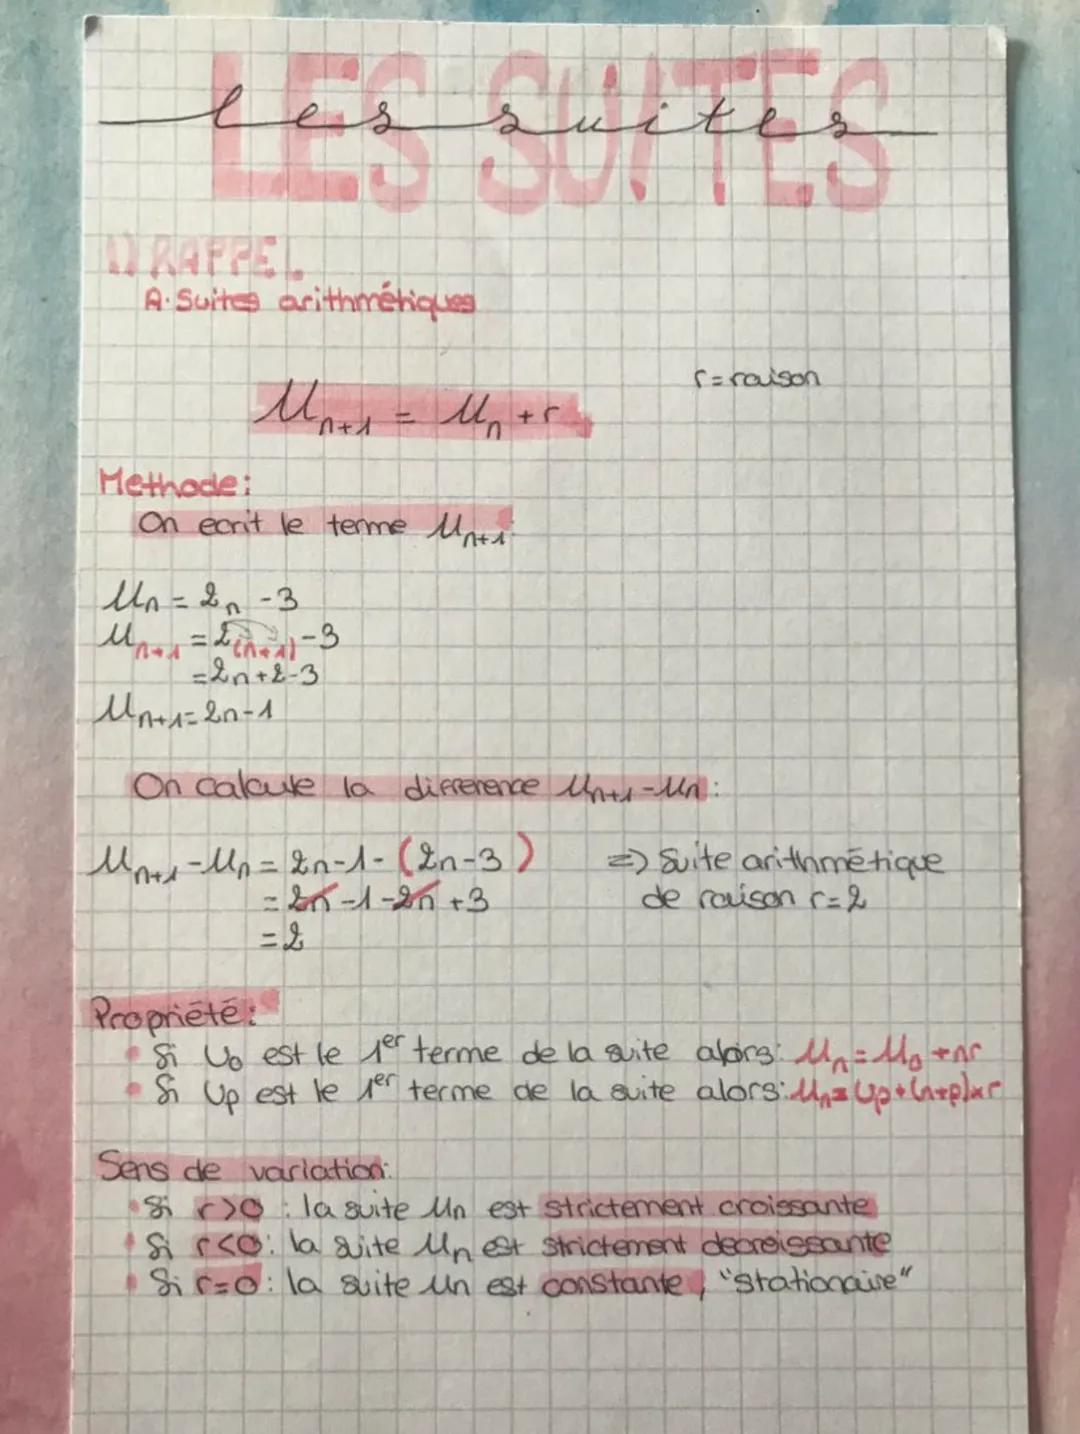 LES SUITES
les suites
1) RAPPEL
A. Suites arithmétiques
r = raison
Un+1 = Un + r
Methode:
On ecrit le terme Un+1:
Un = 2n - 3
Un+1 = 2(n+1) - 3
= 2n + 2 - 3
Un+1 = 2n - 1
On calcule la difference Un+1 - Un:
Un+1 - Un = 2n - 1 - (2n - 3)
= 2n - 1 - 2n + 3
= 2
=> Suite arithmétique
de raison r = 2
Propriété:
• Si U0 est le 1er terme de la suite alors: Un = U0 + nr
• Si Up est le 1er terme de la suite alors: Un = Up + (n+p) x r
Sens de variation:
• Si r > 0 : la suite Un est strictement croissante
• Si r < 0 : la suite Un est strictement decroissante
• Si r = 0 : la suite Un est constante, "stationaire"